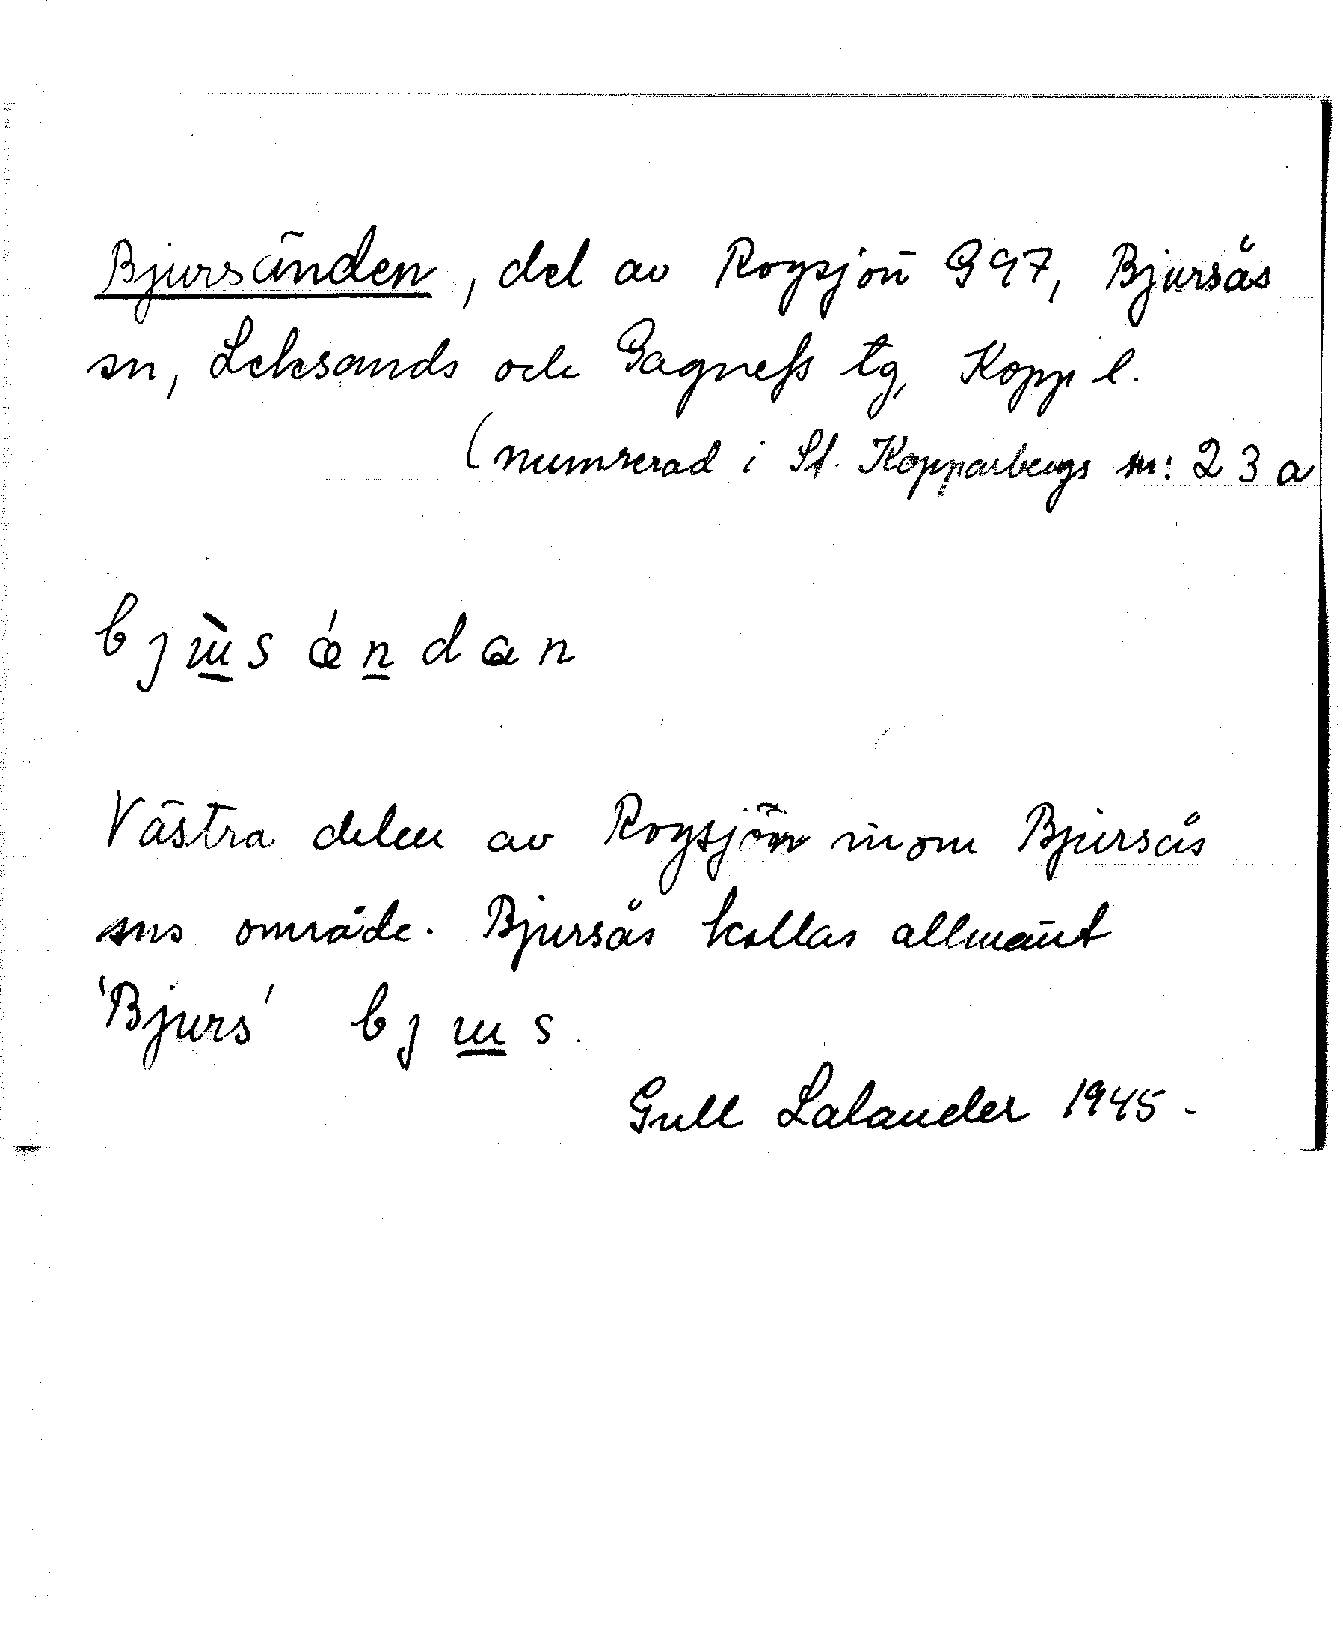 Bjursänden, del av Rogsjön G97, Bjursås
sn, Leksands och Gagnefs tg, Kopp l.
(numrerad i St. Kopparbergs sn: 23a
Västra delen av Rogsjön inom Bjursås
sns område. Bjursås kallas allmänt
'Bjurs'
Gull Lalander 1945.